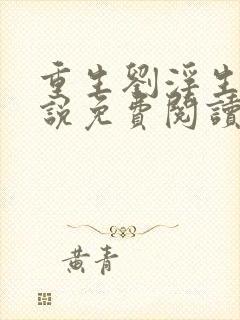 重生劉淫生
說免費閱讀
黃青